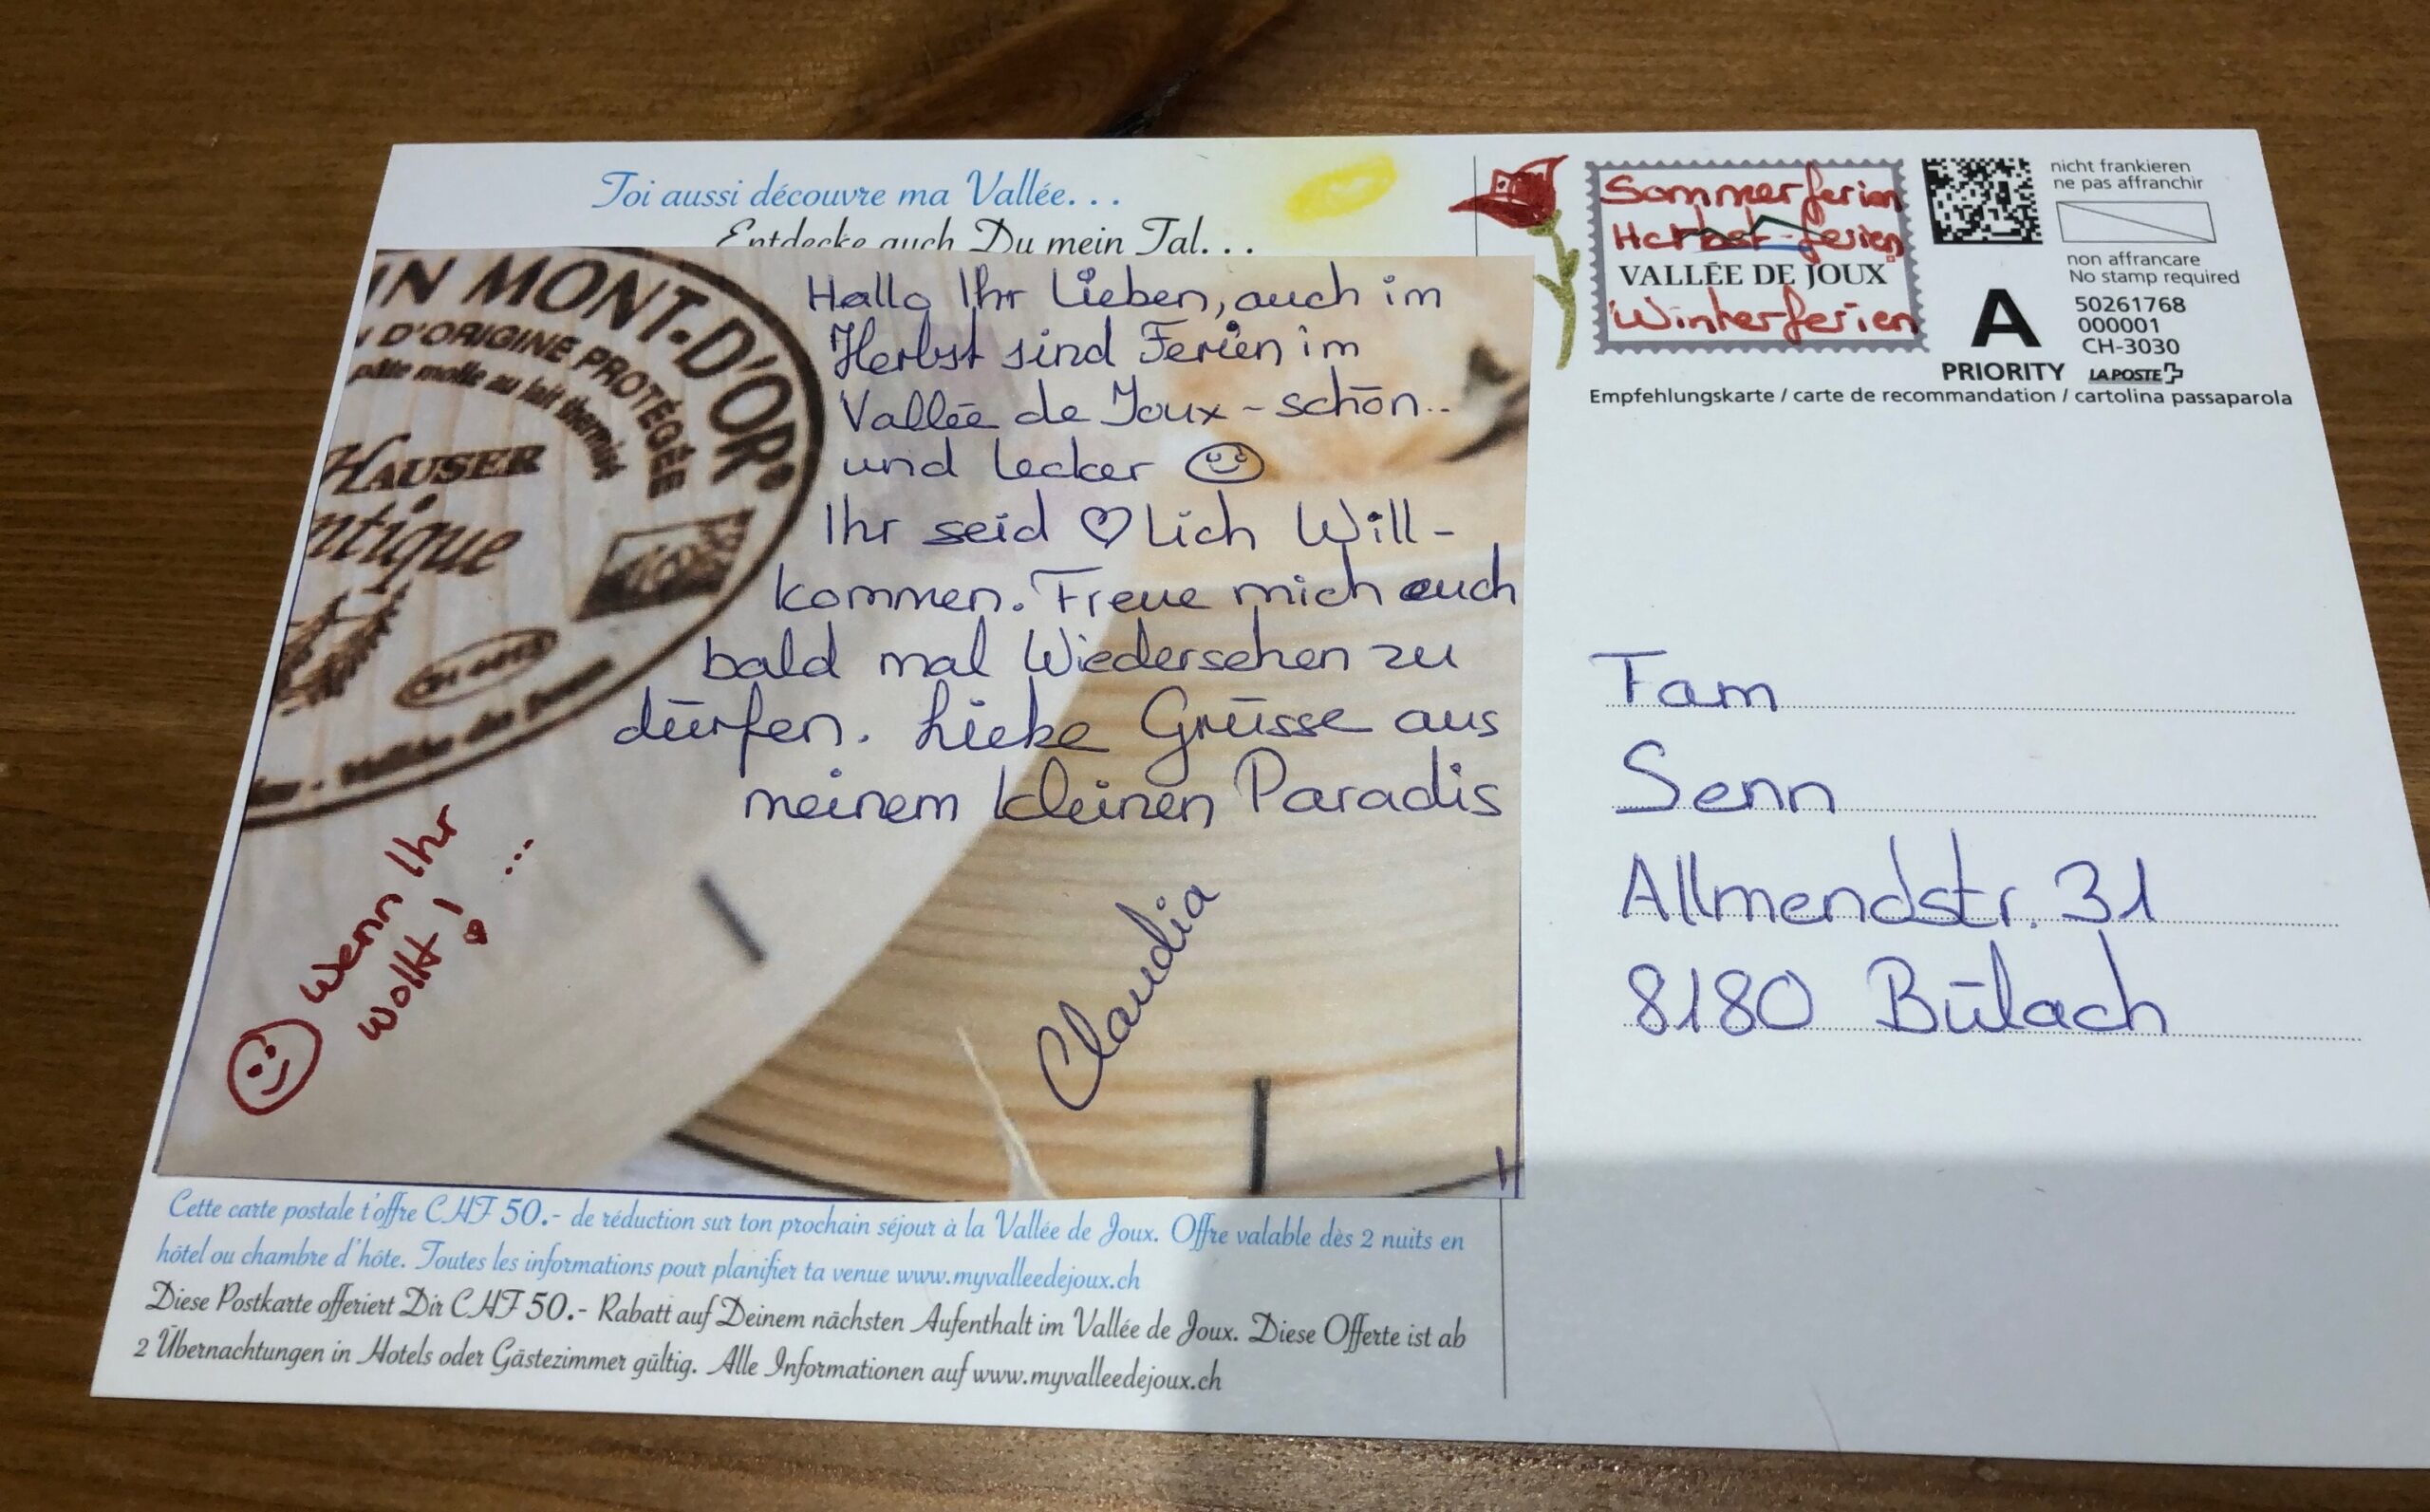 Toi aussi découvre ma Vallée. . .
Entdecke auch Du mein Tal. . .
IN MONT-D'OR
D'ORIGINE PROTÉGÉE
pâte molle au lait thermisé
HAUSER
ntique
Hallo Ihr Lieben, auch im
Herbst sind Ferien im
Vallée de Joux - schön..
und lecker
Ihr seid ♡lich Will-
kommen. Freue mich euch
bald mal Wiedersehen zu
dürfen. Liebe Grüsse aus
meinem kleinen Paradis
Claudia
Wenn Ihr
wollt! ...
Cette carte postale t'offre CHF 50.- de réduction sur ton prochain séjour à la Vallée de Joux. Offre valable dès 2 nuits en
hôtel ou chambre d'hôte. Toutes les informations pour planifier ta venue www.myvalleedejoux.ch
Diese Postkarte offeriert Dir CHF 50.- Rabatt auf Deinem nächsten Aufenthalt im Vallée de Joux. Diese Offerte ist ab
2 Übernachtungen in Hotels oder Gästezimmer gültig. Alle Informationen auf www.myvalleedejoux.ch
Sommerferien
Herbst-ferien
VALLÉE DE JOUX
Winterferien
nicht frankieren
ne pas affranchir
non affrancare
No stamp required
A
PRIORITY
50261768
000001
CH-3030
LA POSTE
Empfehlungskarte / carte de recommandation / cartolina passaparola
Tam
Senn
Allmendstr. 31
8180 Bülach